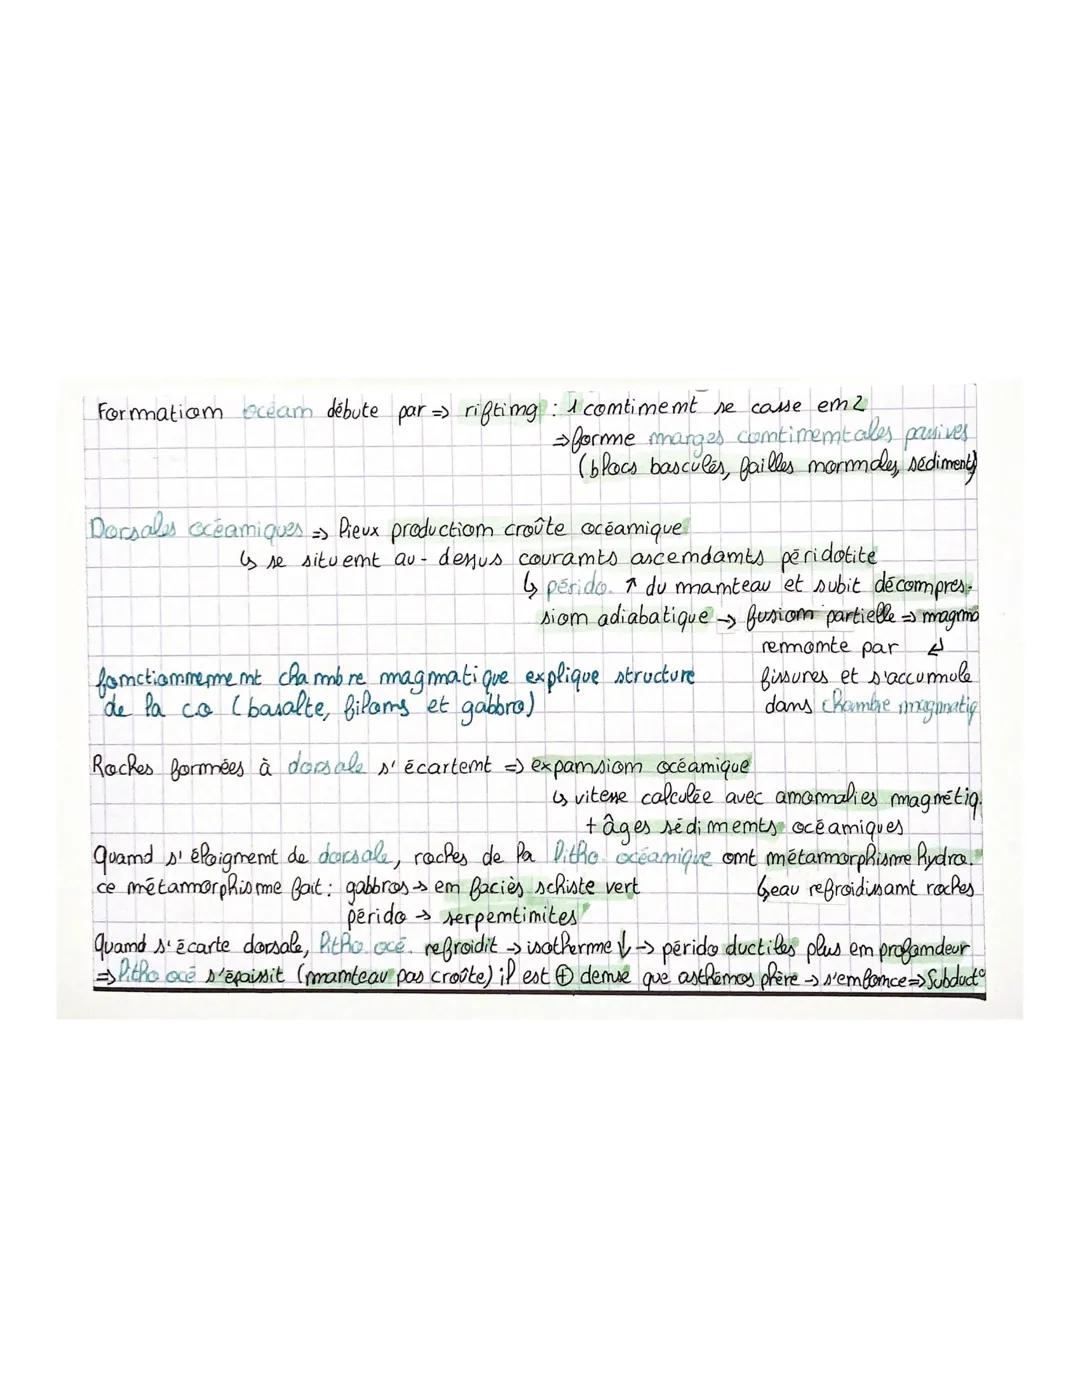 Formation océan débute par => rifting : 1 continent se casse en 2
=> forme marges continentales passives
(blocs basculés, failles normales, sédiments)
Dorsales océaniques => lieux production croûte océanique
↳ se situent au-dessus courants ascendants péridotite
↳ pérido. ↑ du manteau et subit décompres-
sion adiabatique -> fusion partielle => magma
remonte par ↲
fissures et s'accumule
dans chambre magmatiq
fonctionnement chambre magmatique explique structure
de la co (basalte, filons et gabbro)
Roches formées à dorsale s'écartent => expansion océanique
↳ vitesse calculée avec anomalies magnétiq.
+ âges sédiments océaniques
Quand s'éloignent de dorsale, roches de la litho. océanique ont métamorphisme hydro.
↳ eau refroidissant roches
ce métamorphisme fait : gabbros -> en faciès schiste vert
pérido -> serpentinites
Quand s'écarte dorsale, litho. océ. refroidit -> isotherme ↓ -> pérido ductiles plus en profondeur
=> litho océ s'épaissit (manteau pas croûte) il est ⊕ dense que asthénosphère -> s'enfonce => Subduct°